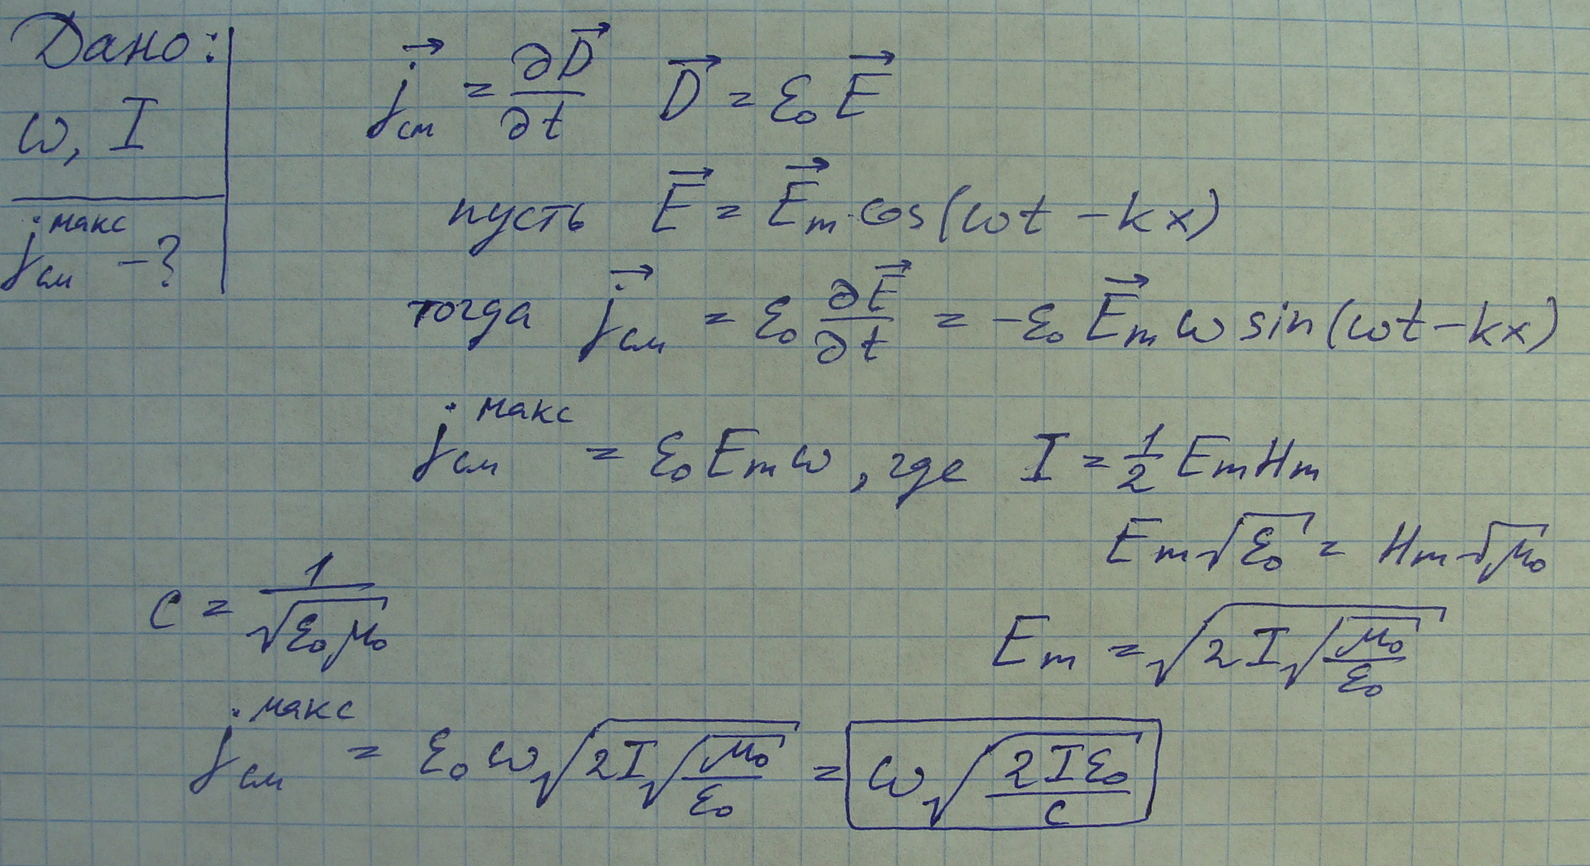 Дано:
ω, I
j_см^макс - ?
j⃗_см = ∂D⃗/∂t   D⃗ = ε₀E⃗
пусть E⃗ = E⃗_m cos(ωt - kx)
тогда j⃗_см = ε₀ ∂E⃗/∂t = -ε₀E⃗_m ω sin(ωt - kx)
j_см^макс = ε₀E_mω, где I = 1/2 E_mH_m
E_m√ε₀ = H_m√μ₀
c = 1/√(ε₀μ₀)
E_m = √(2I√(μ₀/ε₀))
j_см^макс = ε₀ω√(2I√(μ₀/ε₀)) = ω√(2Iε₀/c)